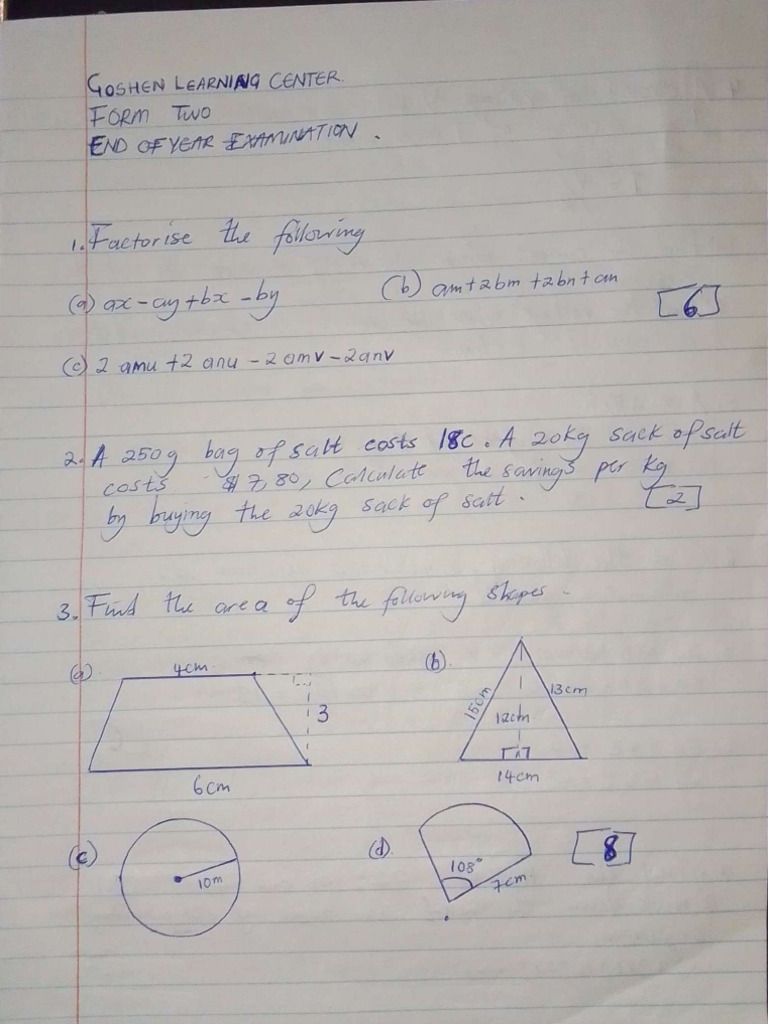 GOSHEN LEARNING CENTER.
FORM TWO
END OF YEAR EXAMINATION.
1. Factorise the following
(a) ax - ay + bx - by (b) am + 2bm + 2bn + an [6]
(c) 2 amu + 2 anu - 2 amv - 2anv
2. A 250g bag of salt costs 18c. A 20kg sack of salt
costs $7,80, Calculate the savings per kg
by buying the 20kg sack of salt. [2]
3. Find the area of the following shapes.
(a) 4cm (b)
3
15cm 12cm 13cm
6cm 14cm
(c) 10m (d) 108° 7cm [8]